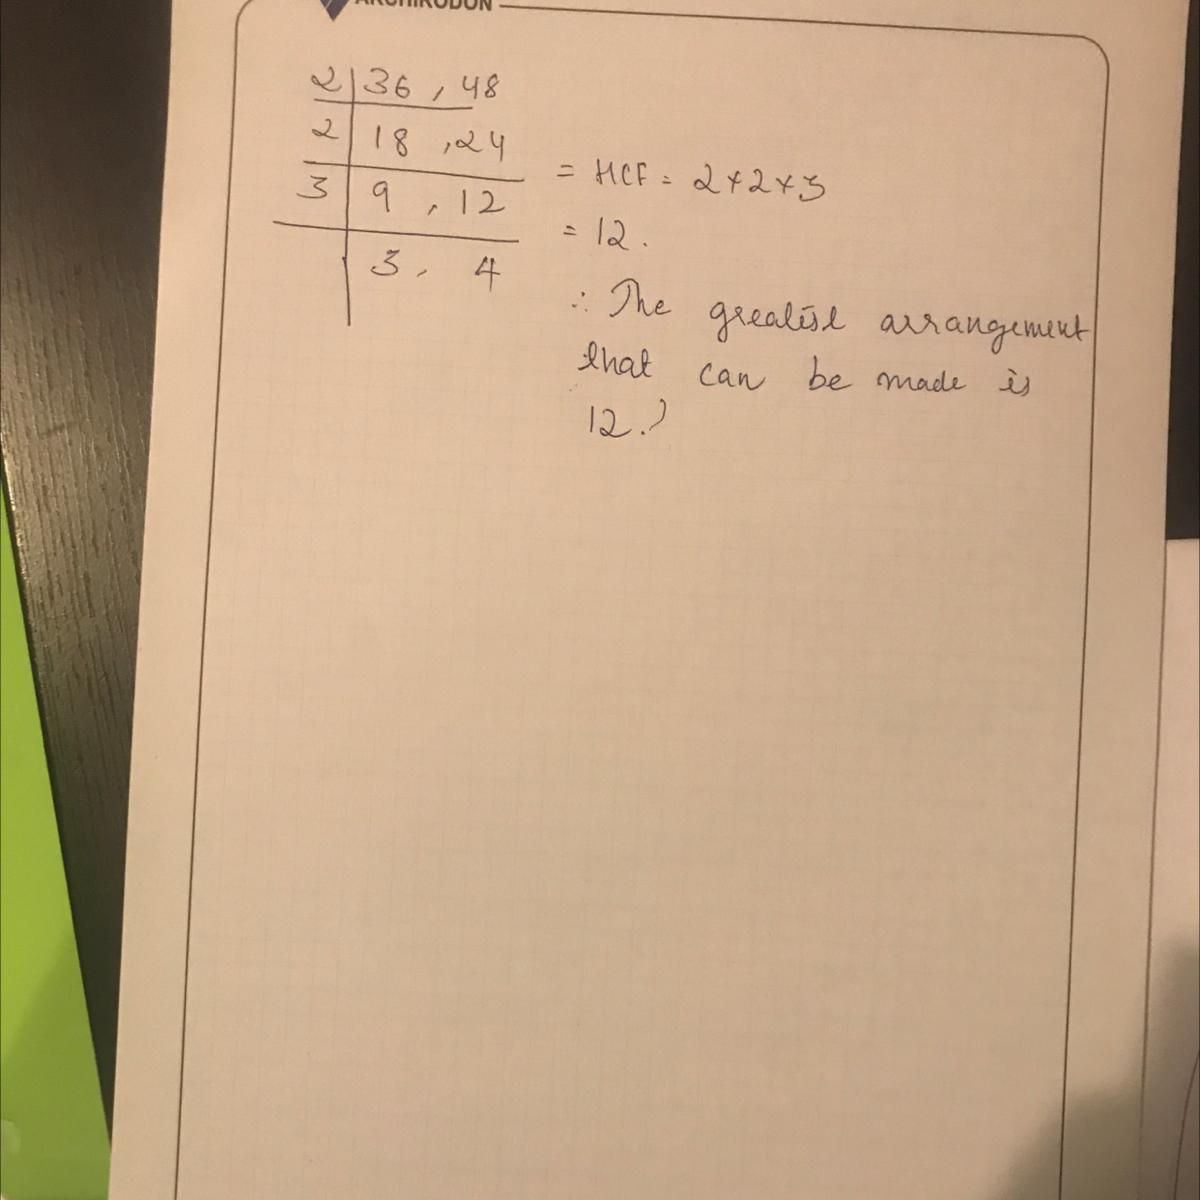 ARCHIRODON
2 | 36 , 48
2 | 18 , 24
3 | 9 , 12
3 , 4
= HCF = 2×2×3
= 12 .
∴ The greatest arrangement
that can be made is
12.